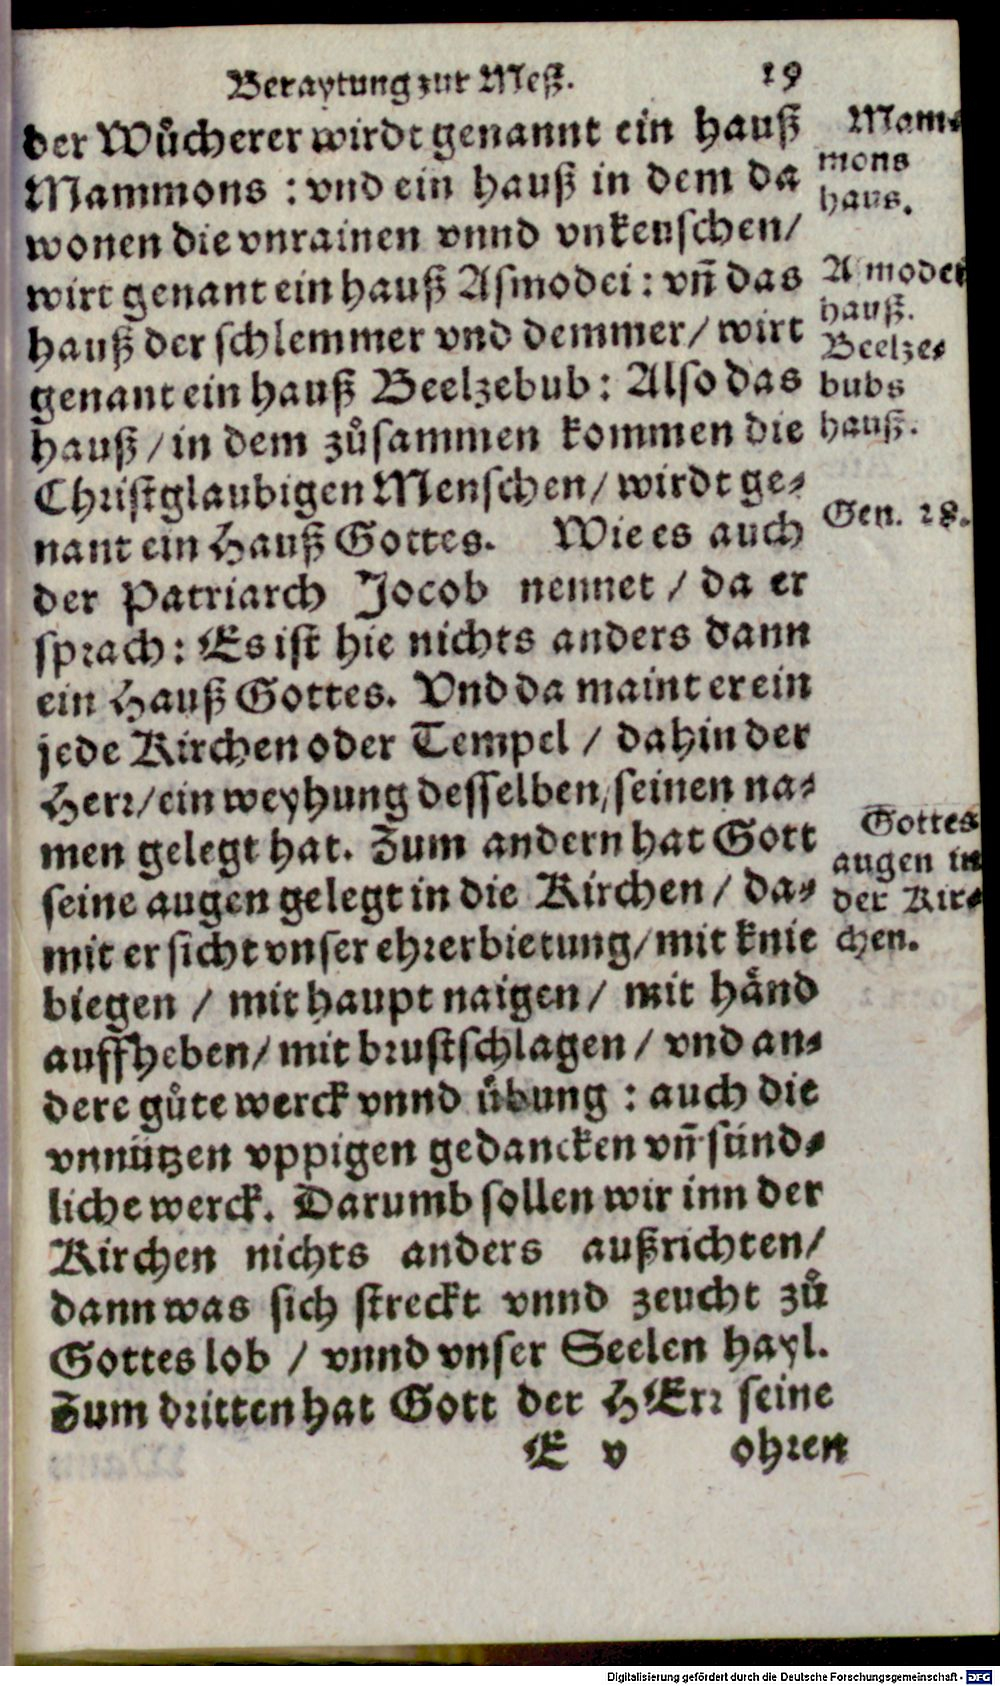 Beraytung zur Meß. 19
der Wůcherer wirdt genannt ein hauß
Mammons : vnd ein hauß in dem da
wonen die vnrainen vnnd vnkeuschen/
wirt genant ein hauß Asmodei : vñ das
hauß der schlemmer vnd demmer/ wirt
genant ein hauß Beelzebub : Also das
hauß / in dem zůsammen kommen die
Christglaubigen Menschen/ wirdt ge-
nant ein Hauß Gottes. Wie es auch
der Patriarch Jocob nennet / da er
sprach : Es ist hie nichts anders dann
ein Hauß Gottes. Vnd da maint er ein
jede Kirchen oder Tempel / dahin der
Herr/ ein weyhung desselben, seinen na-
men gelegt hat. Zum andern hat Gott
seine augen gelegt in die Kirchen / da-
mit er sicht vnser ehrerbietung/ mit knie
biegen / mit haupt naigen/ mit händ
auffheben/ mit brustschlagen / vnd an-
dere gůte werck vnnd übung : auch die
vnnützen vppigen gedancken vñ sünd-
liche werck. Darumb sollen wir inn der
Kirchen nichts anders außrichten/
dann was sich streckt vnnd zeucht zů
Gottes lob / vnnd vnser Seelen hayl.
Zum dritten hat Gott der HErr seine
E v ohren
Mam-
mons
haus.
Asmodei
hauß.
Beelze-
bubs
hauß.
Gen. 28.
Gottes
augen in
der Kir-
chen.
Digitalisierung gefördert durch die Deutsche Forschungsgemeinschaft - DFG